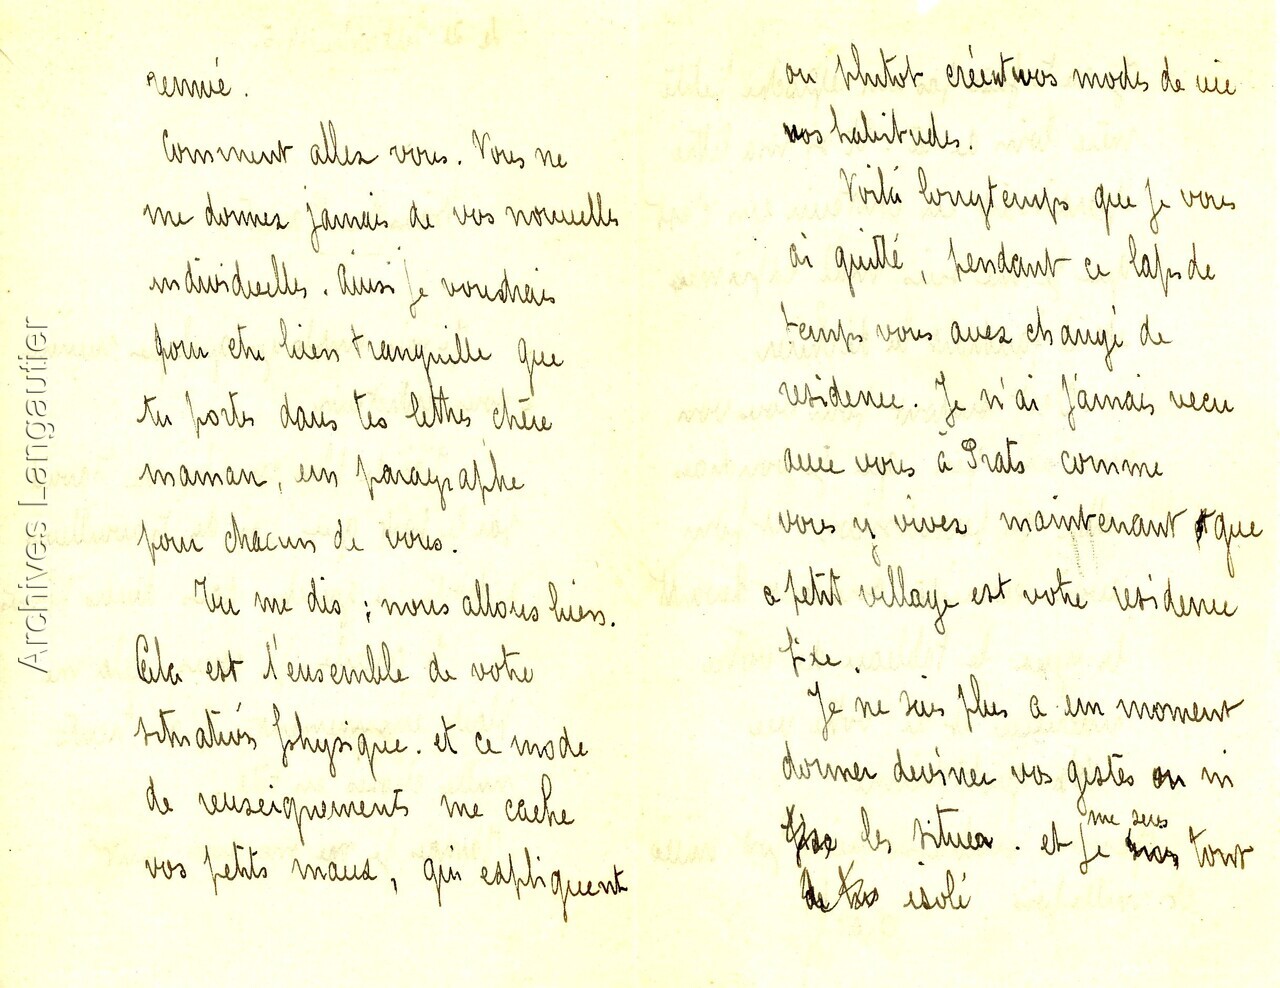 remué.
Comment allez vous. Vous ne
me donnez jamais de vos nouvelles
individuelles. Ainsi je voudrais
pour etre bien tranquille que
tu portes dans tes lettres chère
maman, un paragraphe
pour chacun de vous.
Tu me dis ; nous allons bien.
Cela est l'ensemble de votre
situation physique. et ce mode
de renseignements me cache
vos petits maux, qui expliquent
ou plutot créent vos modes de vie
vos habitudes.
Voilà longtemps que je vous
ai quitté, pendant ce laps de
temps vous avez changé de
residence. Je n'ai jamais vecu
avec vous à Prats comme
vous y vivez maintenant que
ce petit village est votre residence
fixe.
Je ne suis plus a un moment
donner deviner vos gestes ou ni
les situer. et je me sens tout
isolé
Archives Langautier